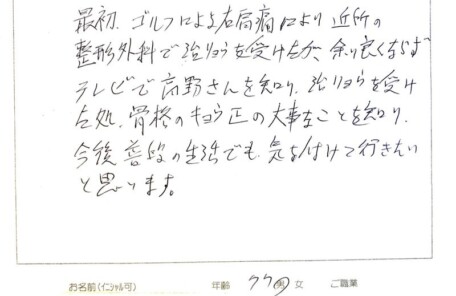 最初、ゴルフによる右肩痛により近所の
整形外科で治りょうを受けたが、余り良くならず
テレビで高野さんを知り、治りょうを受け
た処、骨格のキョウ正の大事なことを知り、
今後普段の生活でも、気を付けて行きたい
と思います。
お名前(イニシャル可) 年齢 77 男 女 ご職業